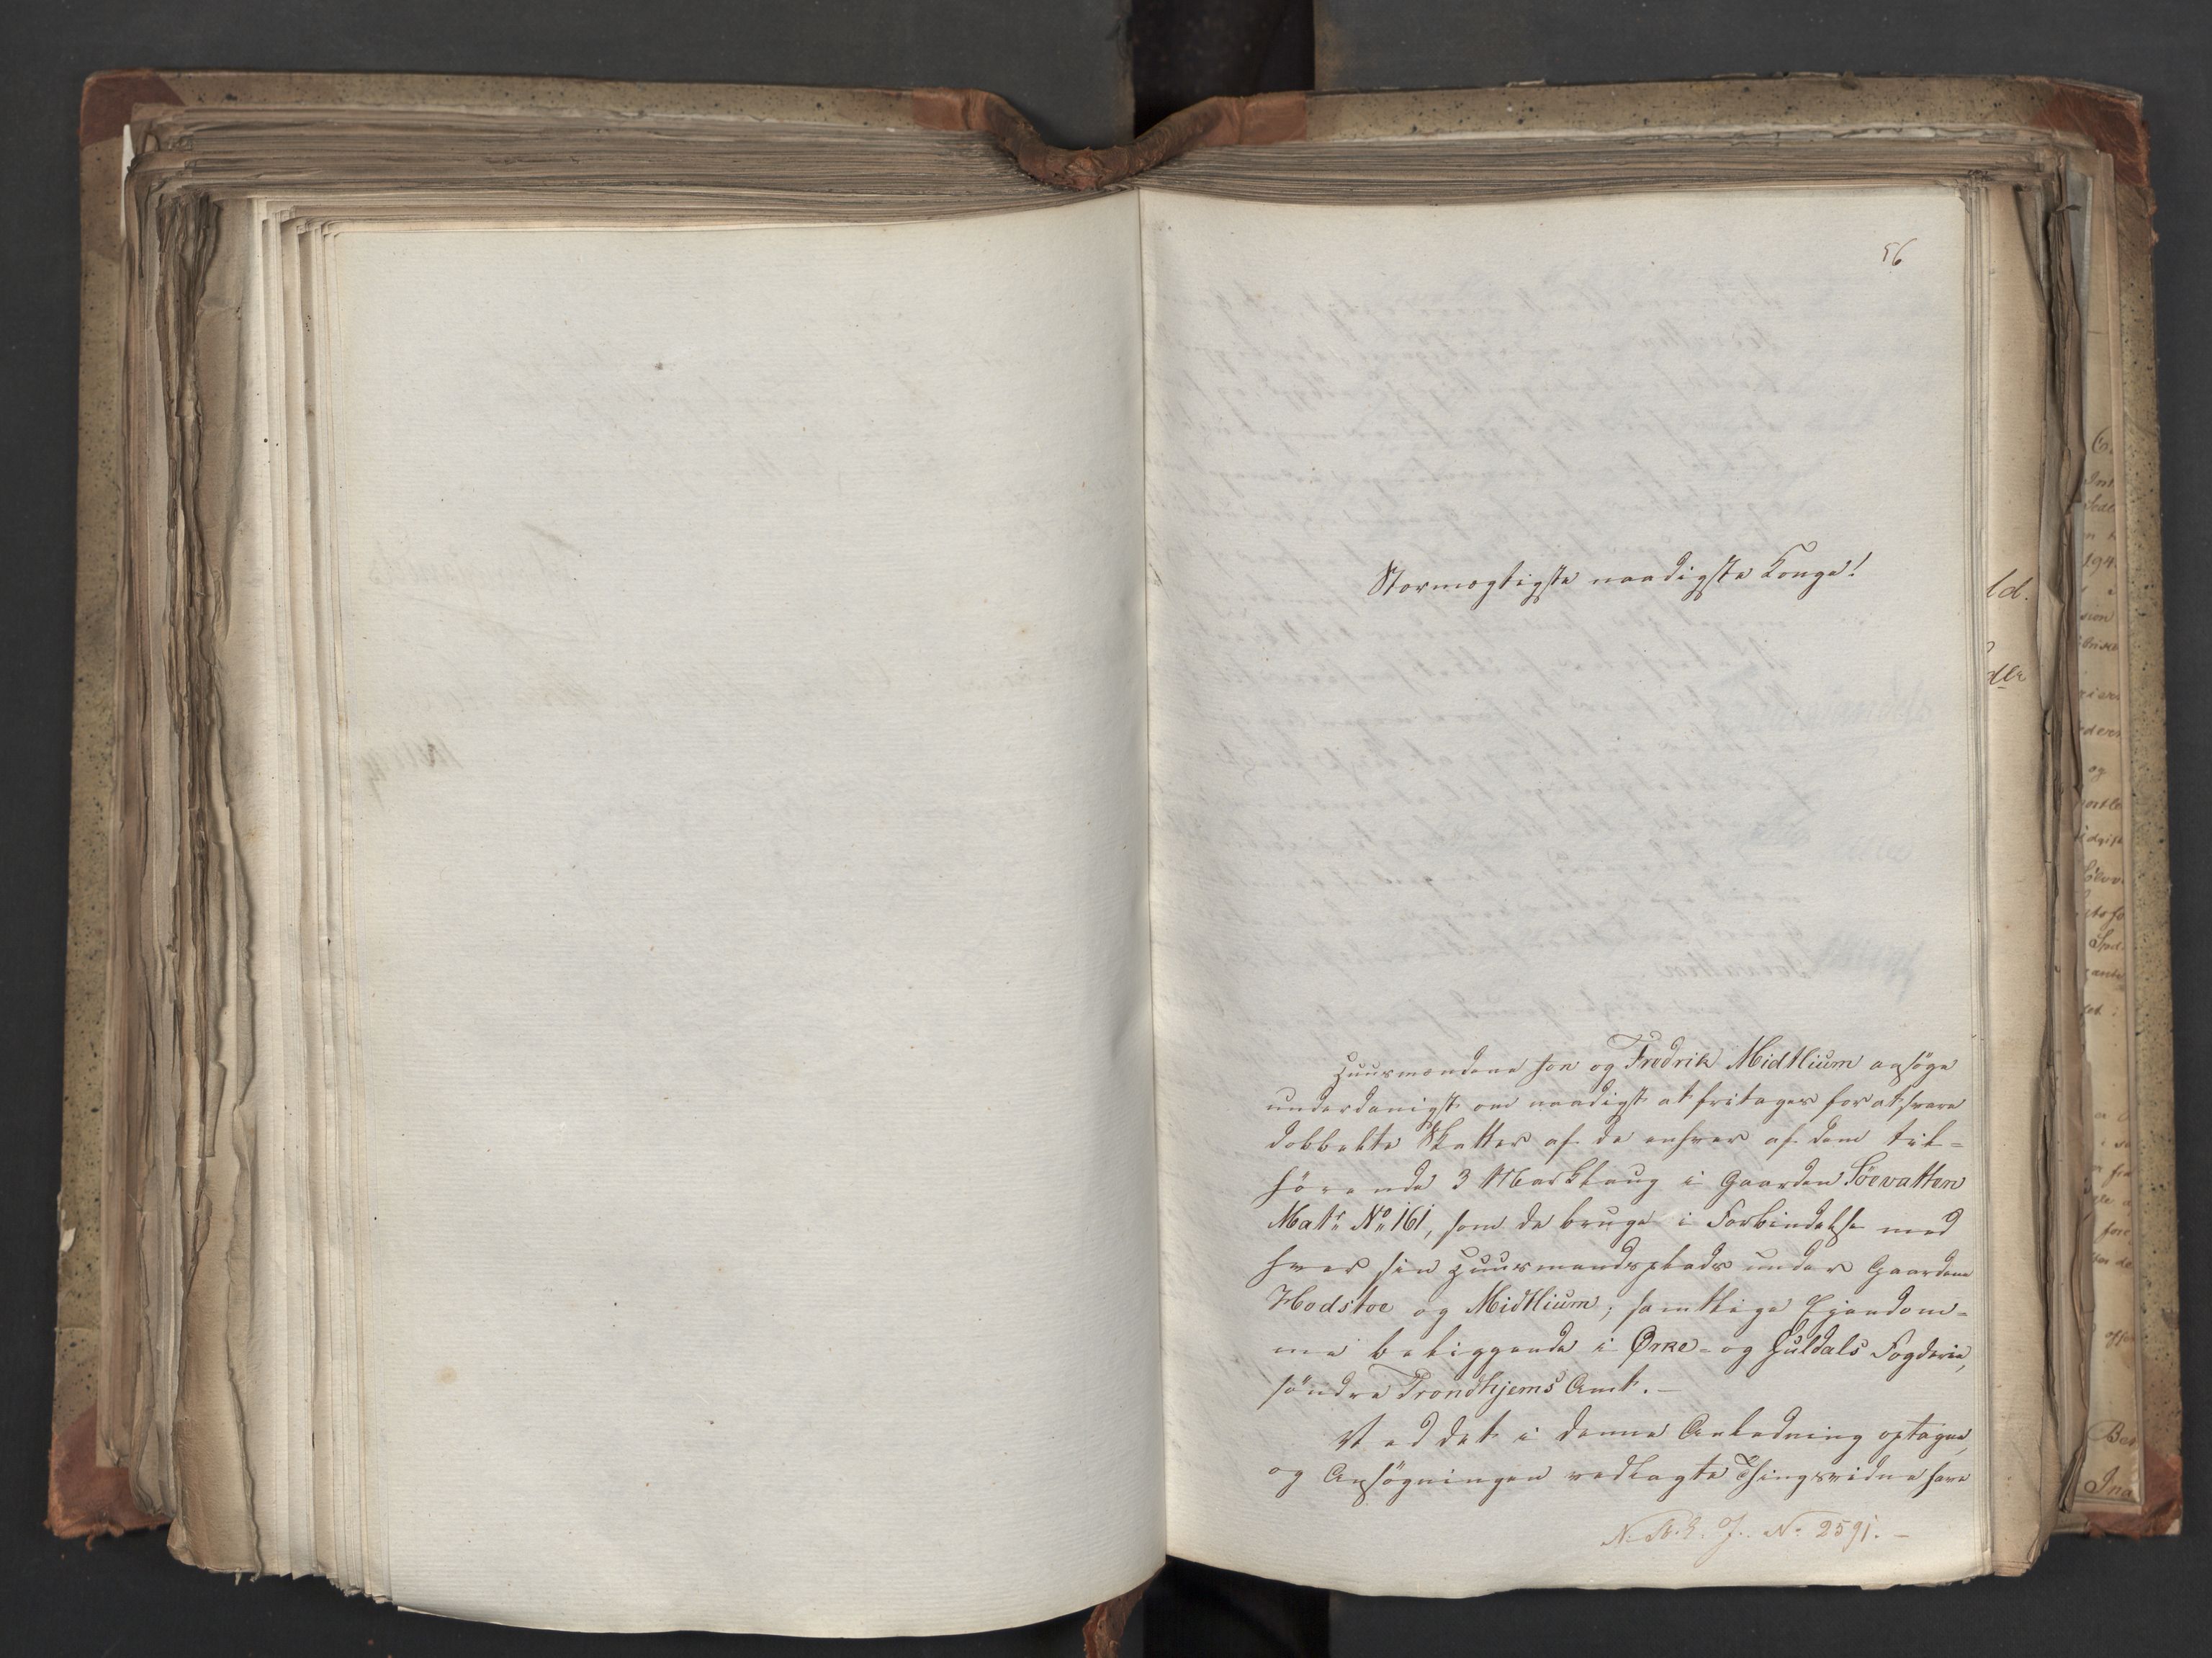 56
Stormægtigste naadigste Konge!
Huusmændene Jon og Fredrik Midtlium ansøge
underdanigst om naadigst at fritages for at svare
dobbelte Skatter af de enhver af dem til=
hørende 3 Marklaug i Gaarden Söevatten
Matr No 161, som de bruge i Forbindelse med
hver sin Huusmandsplads under Gaardene
Hodstoe og Midtlium; samtlige Ejendom=
me beliggende i Ørke- og Guldals Fogderie,
søndre Trondhjems Amt. –
Ved det i denne Anledning optagne,
og Ansøgningen vedlagte Thingsvidne have
N. St. S. J. No 2591. –